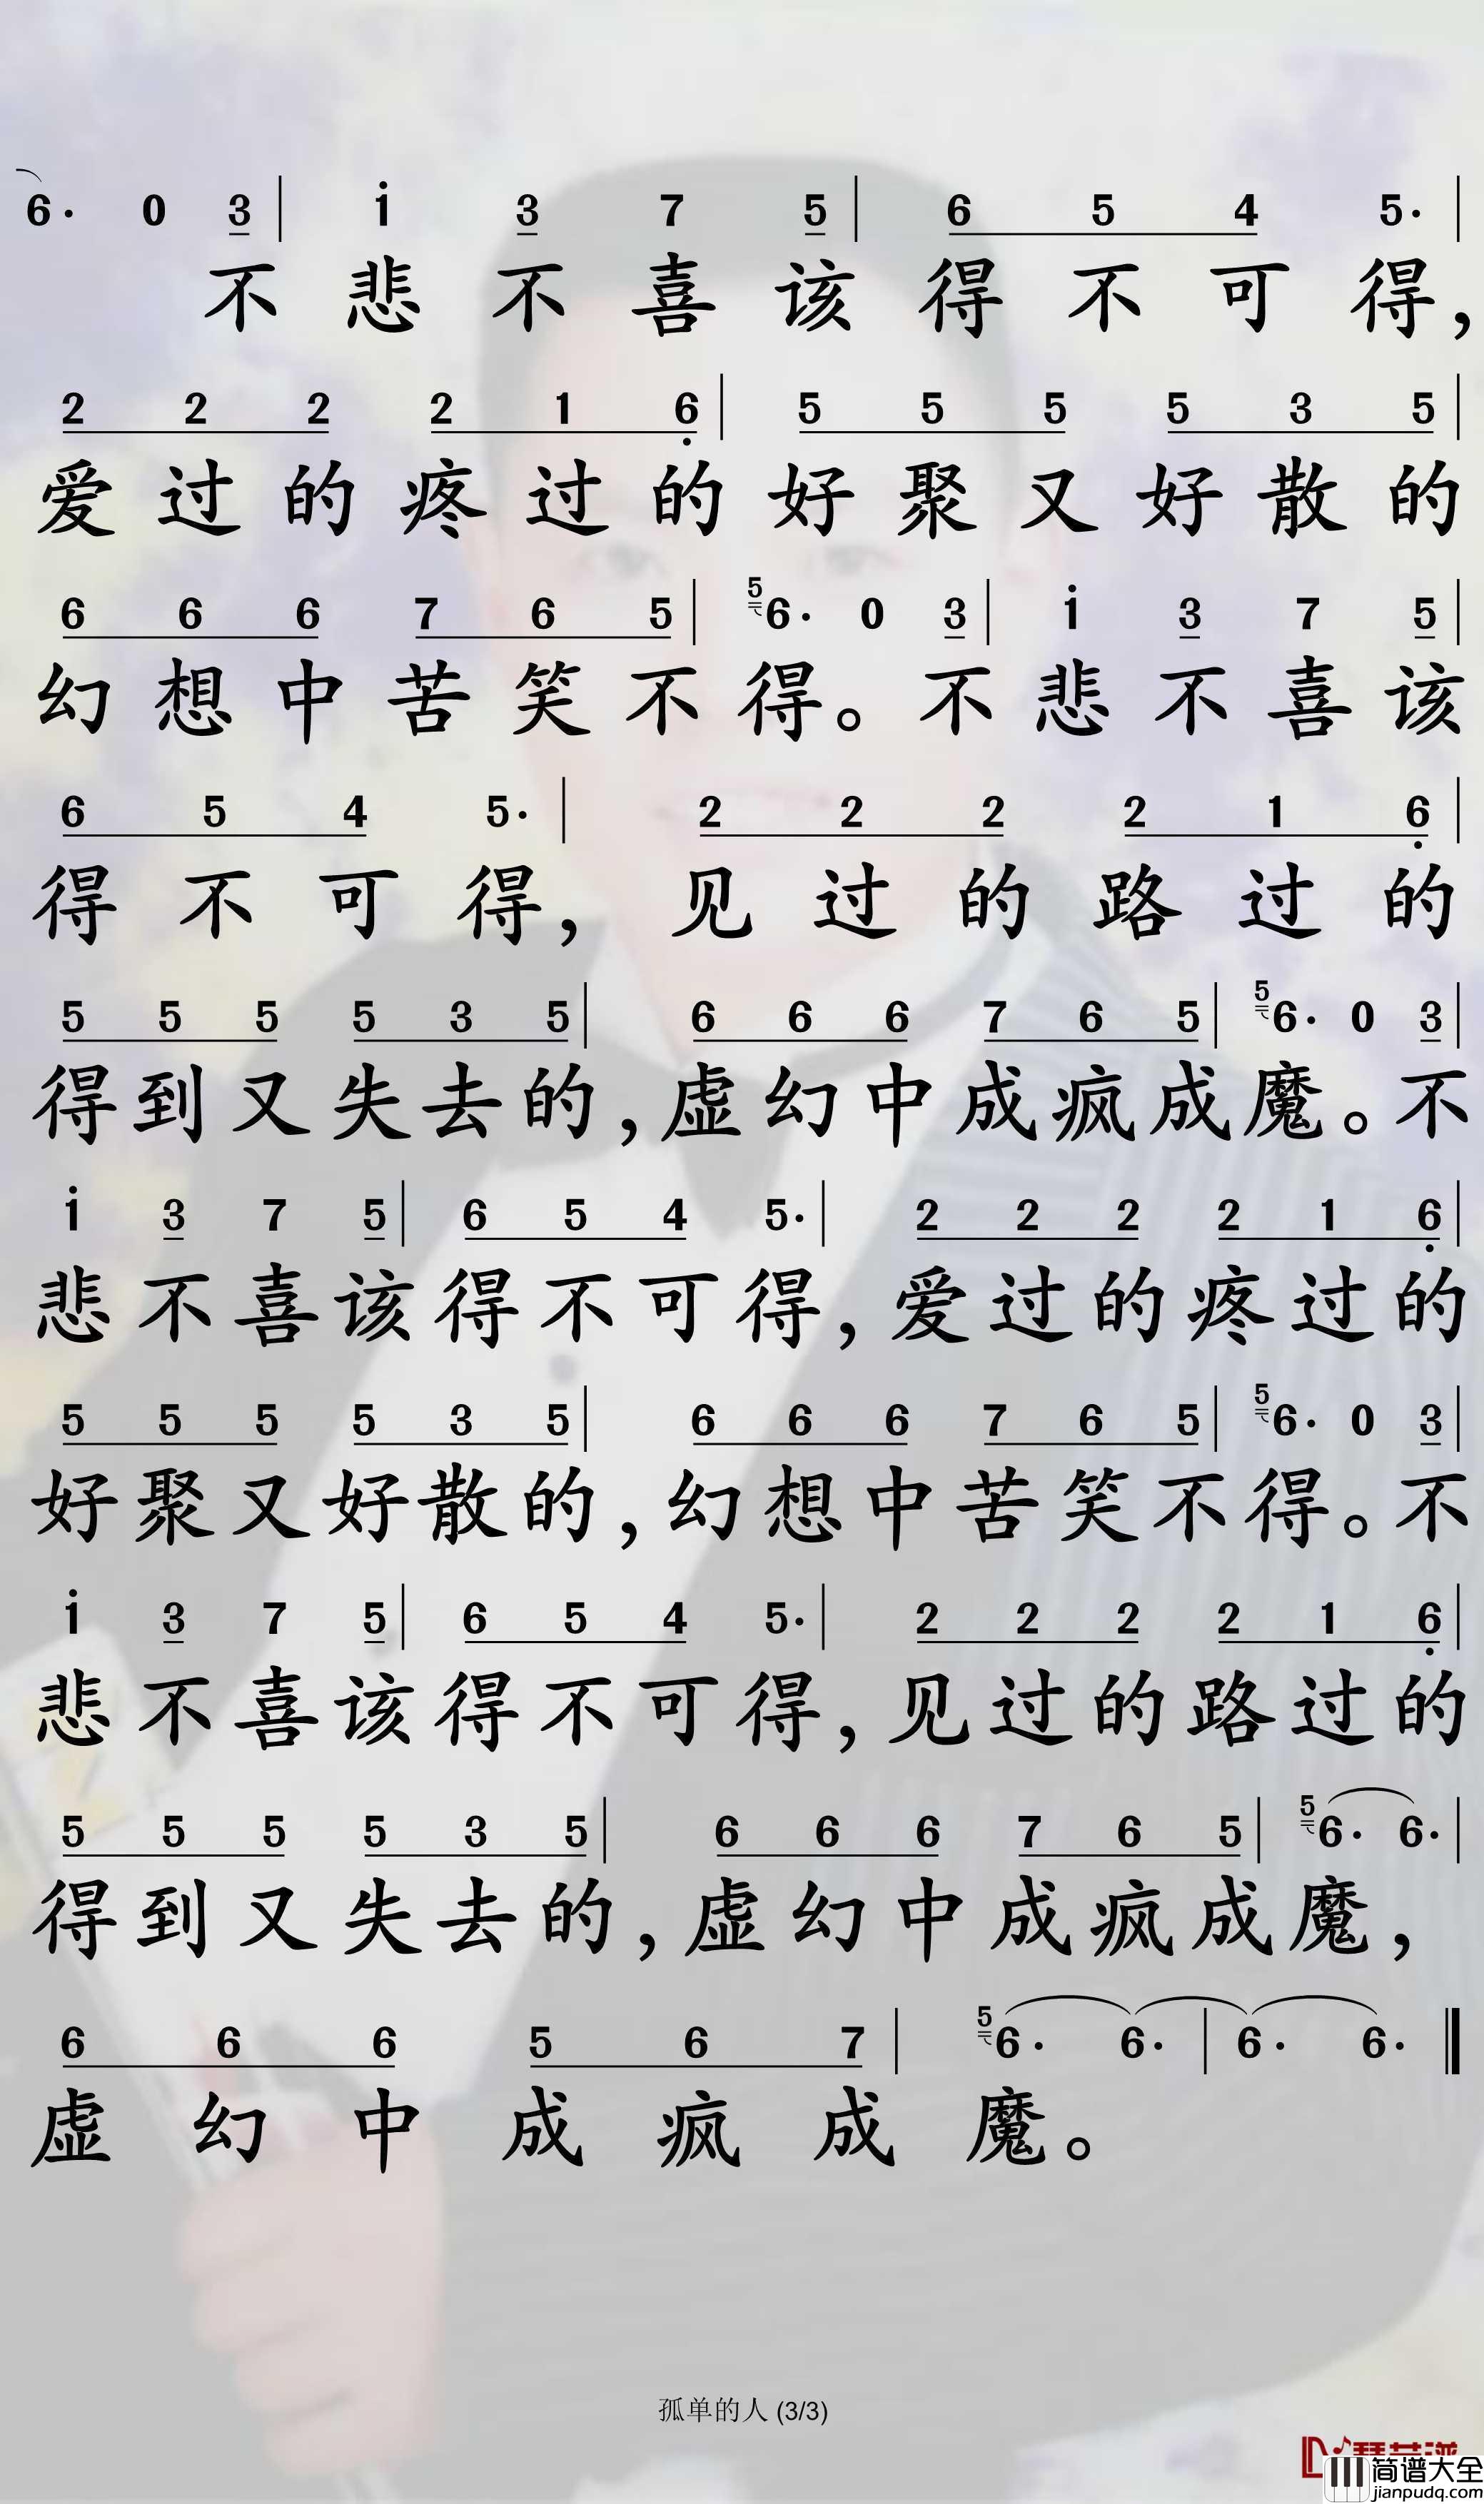 6· 0 3 | i 3 7 5 | 6 5 4 5· |
不悲不喜该得不可得，
2 2 2 2 1 6 | 5 5 5 5 3 5 |
爱过的疼过的好聚又好散的
6 6 6 7 6 5 | 5 6· 0 3 | i 3 7 5 |
幻想中苦笑不得。不悲不喜该
6 5 4 5· | 2 2 2 2 1 6 |
得不可得，见过的路过的
5 5 5 5 3 5 | 6 6 6 7 6 5 | 5 6· 0 3 |
得到又失去的，虚幻中成疯成魔。不
i 3 7 5 | 6 5 4 5· | 2 2 2 2 1 6 |
悲不喜该得不可得，爱过的疼过的
5 5 5 5 3 5 | 6 6 6 7 6 5 | 5 6· 0 3 |
好聚又好散的，幻想中苦笑不得。不
i 3 7 5 | 6 5 4 5· | 2 2 2 2 1 6 |
悲不喜该得不可得，见过的路过的
5 5 5 5 3 5 | 6 6 6 7 6 5 | 5 6· 6· |
得到又失去的，虚幻中成疯成魔，
6 6 6 5 6 7 | 5 6· 6· | 6· 6· ‖
虚幻中成疯成魔。
孤单的人 (3/3)
简谱大全
jianpudq.com